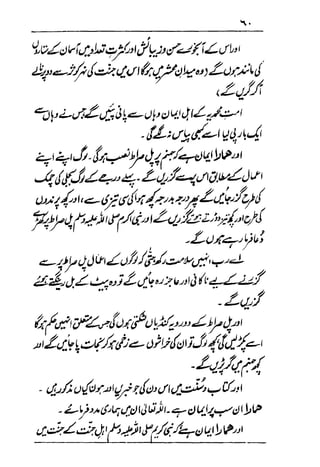 ۶۰
اور اس کے آبخورے حسن و زیبائش اور کثرتِ تعداد میں آسمان کے ستاروں
کی مانند ہوں گے (وہ میدان محشر میں ہو گا اس میں جنت کی نہر کوثر سے دو پرنالے
آ کر گریں گے)
امت محمدیہ کے اہل ایمان وہاں سے پانی پئیں گے جس نے وہاں سے
ایک بار پی لیا اسے کبھی پیاس نہ لگے گی۔
اور ہمارا ایمان ہے کہ جہنم پر پل صراط نصب ہو گی۔ لوگ اپنے اپنے
اعمال کے مطابق اس پر سے گزریں گے۔ پہلے درجے کے لوگ بجلی کی چمک
کی طرح گزر جائیں گے پھر درجہ بدرجہ کچھ ہوا کی سی تیزی سے، اور کچھ پرندوں
کی طرح اور کچھ تیز دوڑتے ہوئے گزریں گے۔ اور نبی اکرم صلی اللہ علیہ وسلم پل صراط پر کھڑے
دعا فرما رہے ہوں گے۔
اے رب! انہیں سلامت رکھ حتیٰ کہ لوگوں کے اعمال پل صراط پر سے
گزرنے کے لیے ناکافی اور عاجز رہ جائیں گے تو وہ پیٹ کے بل رینگتے ہوئے
گزریں گے۔
اور پل صراط کے دو رویہ کنڈیاں لٹکتی ہوں گی جس کے متعلق انہیں حکم ہو گا
اسے پکڑ لیں گی، کچھ لوگ تو ان کی خراشوں سے زخمی ہو کر نجات پا جائیں گے اور
کچھ جہنم میں گر پڑیں گے۔
اور کتاب و سنت میں اس دن کی جو خبریں اور ہولناکیاں مذکور ہیں۔
ہمارا ان سب پر ایمان ہے۔ اللہ تعالیٰ ان میں ہماری مدد فرمائے۔
اور ہمارا ایمان ہے کہ نبی کریم صلی اللہ علیہ وسلم اہل جنت کے جنت میں